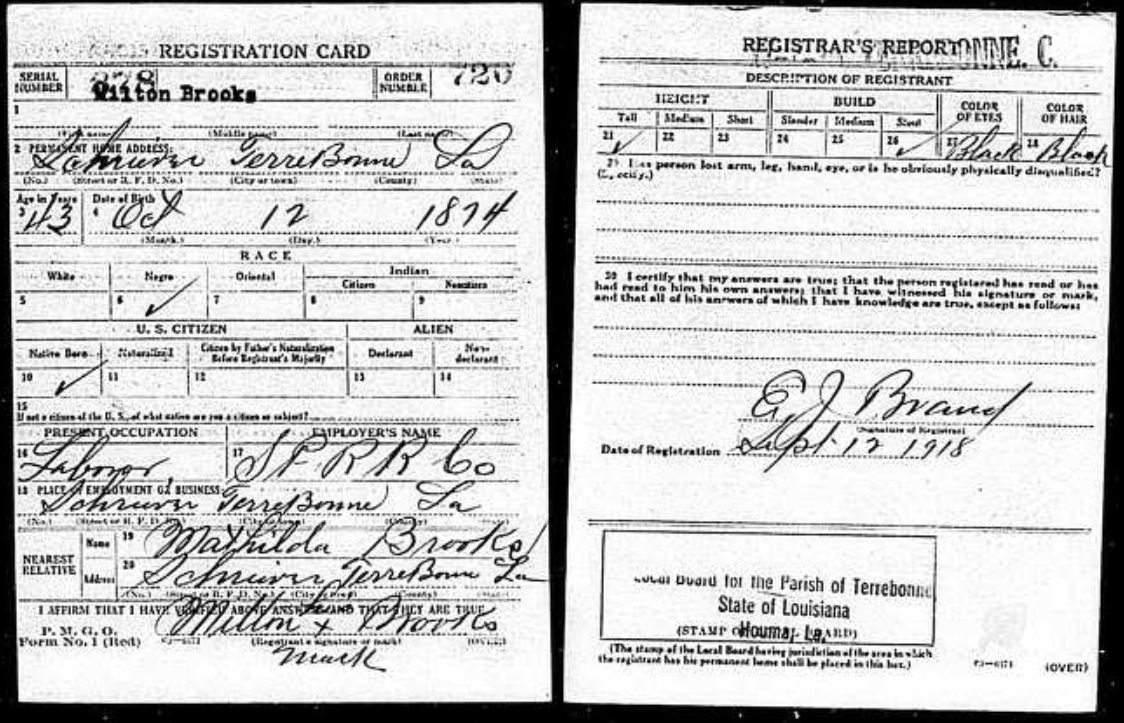 REGISTRATION CARD
SERIAL NUMBER 378 ORDER NUMBER 720
Milton Brooks
1
(First name) (Middle name) (Last name)
2 PERMANENT HOME ADDRESS:
Schriever TerreBonne La
(No.) (Street or R. F. D. No.) (City or town) (County) (State)
Age in Years Date of Birth
3 43 4 Oct 12 1874
(Month.) (Day.) (Year.)
RACE
White Negro Oriental Indian
Citizen Noncitizen
5 6 ✓ 7 8 9
U. S. CITIZEN ALIEN
Native Born Naturalized Citizen by Father's Naturalization Before Registrant's Majority Declarant Non-declarant
10 ✓ 11 12 13 14
15
If not a citizen of the U. S., of what nation are you a citizen or subject?
PRESENT OCCUPATION EMPLOYER'S NAME
16 Laborer 17 S P R R Co
18 PLACE OF EMPLOYMENT OR BUSINESS:
Schriever TerreBonne La
(No.) (Street or R. F. D. No.) (City or town) (County) (State)
NEAREST RELATIVE Name 19 Mathilda Brooks
Address 20 Schriever TerreBonne La
(No.) (Street or R. F. D. No.) (City or town) (County) (State)
I AFFIRM THAT I HAVE VERIFIED ABOVE ANSWERS AND THAT THEY ARE TRUE
P. M. G. O.
Form No. 1 (Red)
Milton x Brooks
(Registrant's signature or mark) (OVER)
mark
REGISTRAR'S REPORT
DESCRIPTION OF REGISTRANT
HEIGHT BUILD COLOR OF EYES COLOR OF HAIR
Tall Medium Short Slender Medium Stout
21 ✓ 22 23 24 25 26 ✓ 27 Black 28 Black
29 Has person lost arm, leg, hand, eye, or is he obviously physically disqualified?
(Specify.)
30 I certify that my answers are true; that the person registered has read or has
had read to him his own answers; that I have witnessed his signature or mark,
and that all of his answers of which I have knowledge are true, except as follows:
(Signature of Registrar)
Date of Registration Sept 12 1918
Local Board for the Parish of Terrebonne
State of Louisiana
Houma, La.
(STAMP OF LOCAL BOARD)
(The stamp of the Local Board having jurisdiction of the area in which
the registrant has his permanent home shall be placed in this box.)
(OVER)